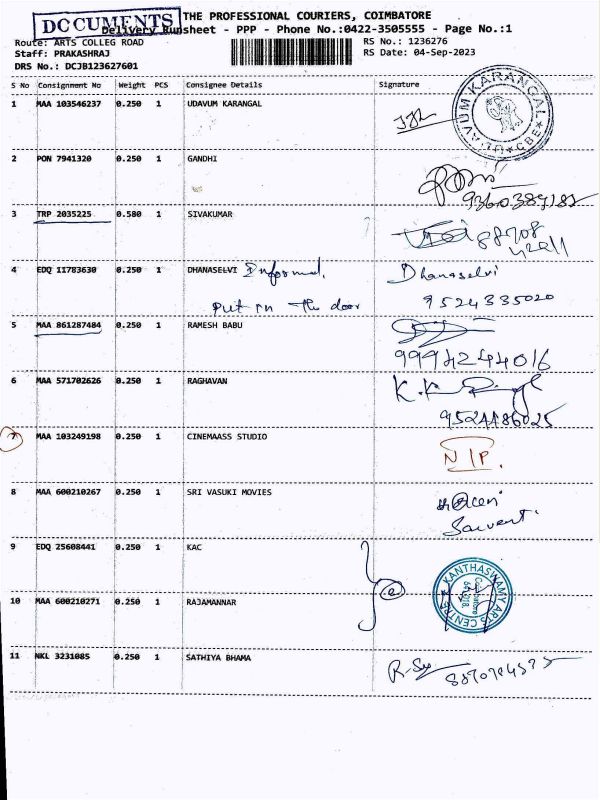 DOCUMENTS
THE PROFESSIONAL COURIERS, COIMBATORE
Delivery Runsheet - PPP - Phone No.:0422-3505555 - Page No.:1
Route: ARTS COLLEG ROAD RS No.: 1236276
Staff: PRAKASHRAJ RS Date: 04-Sep-2023
DRS No.: DCJB123627601
S No Consignment No Weight PCS Consignee Details Signature
1 MAA 103546237 0.250 1 UDAVUM KARANGAL
UDAVUM KARANGAL CBE
2 PON 7941320 0.250 1 GANDHI
9360389182
3 TRP 2035225 0.580 1 SIVAKUMAR
88708
4 EDQ 11783630 0.250 1 DHANASELVI Informed. Dhanaselvi
Put in the door 9524335020
5 MAA 861287484 0.250 1 RAMESH BABU
9994244016
6 MAA 571702626 0.250 1 RAGHAVAN
9524486025
7 MAA 103249198 0.250 1 CINEMAASS STUDIO
N/P.
8 MAA 600210267 0.250 1 SRI VASUKI MOVIES
Servent.
9 EDQ 25608441 0.250 1 KAC
KANTHASWAMY ARTS CENTRE
10 MAA 600210271 0.250 1 RAJAMANNAR
11 NKL 3231085 0.250 1 SATHIYA BHAMA